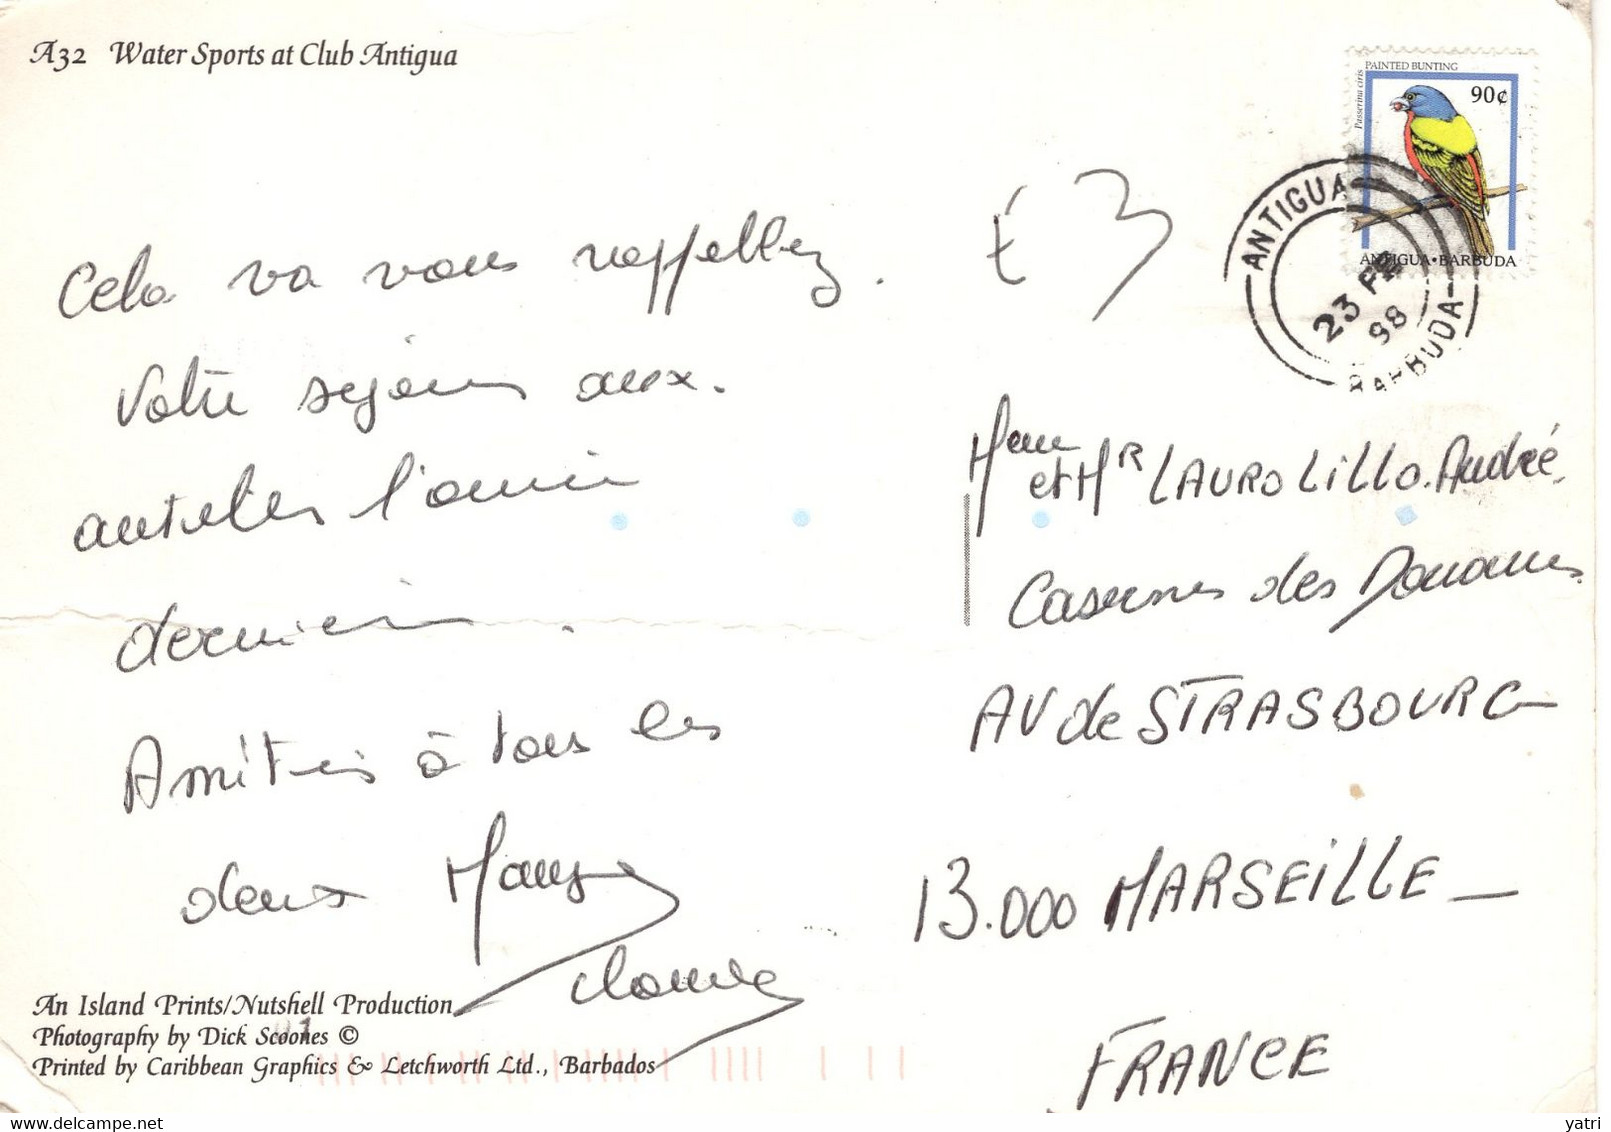 A32 Water Sports at Club Antigua
PAINTED BUNTING
Passerina ciris
90¢
ANTIGUA•BARBUDA
ANTIGUA
23 FE
98
BARBUDA
€ 3
Cela va vous rappeller
Votre sejour aux.
antilles l'année
dernière.
Amitiés à tous les
deux
Mme
et Mr LAUROLILLO. André.
Casernes des Douanes
AV de STRASBOURG
13.000 MARSEILLE
FRANCE
An Island Prints/Nutshell Production
Photography by Dick Scoones ©
Printed by Caribbean Graphics & Letchworth Ltd., Barbados
delcampe.net
yatri